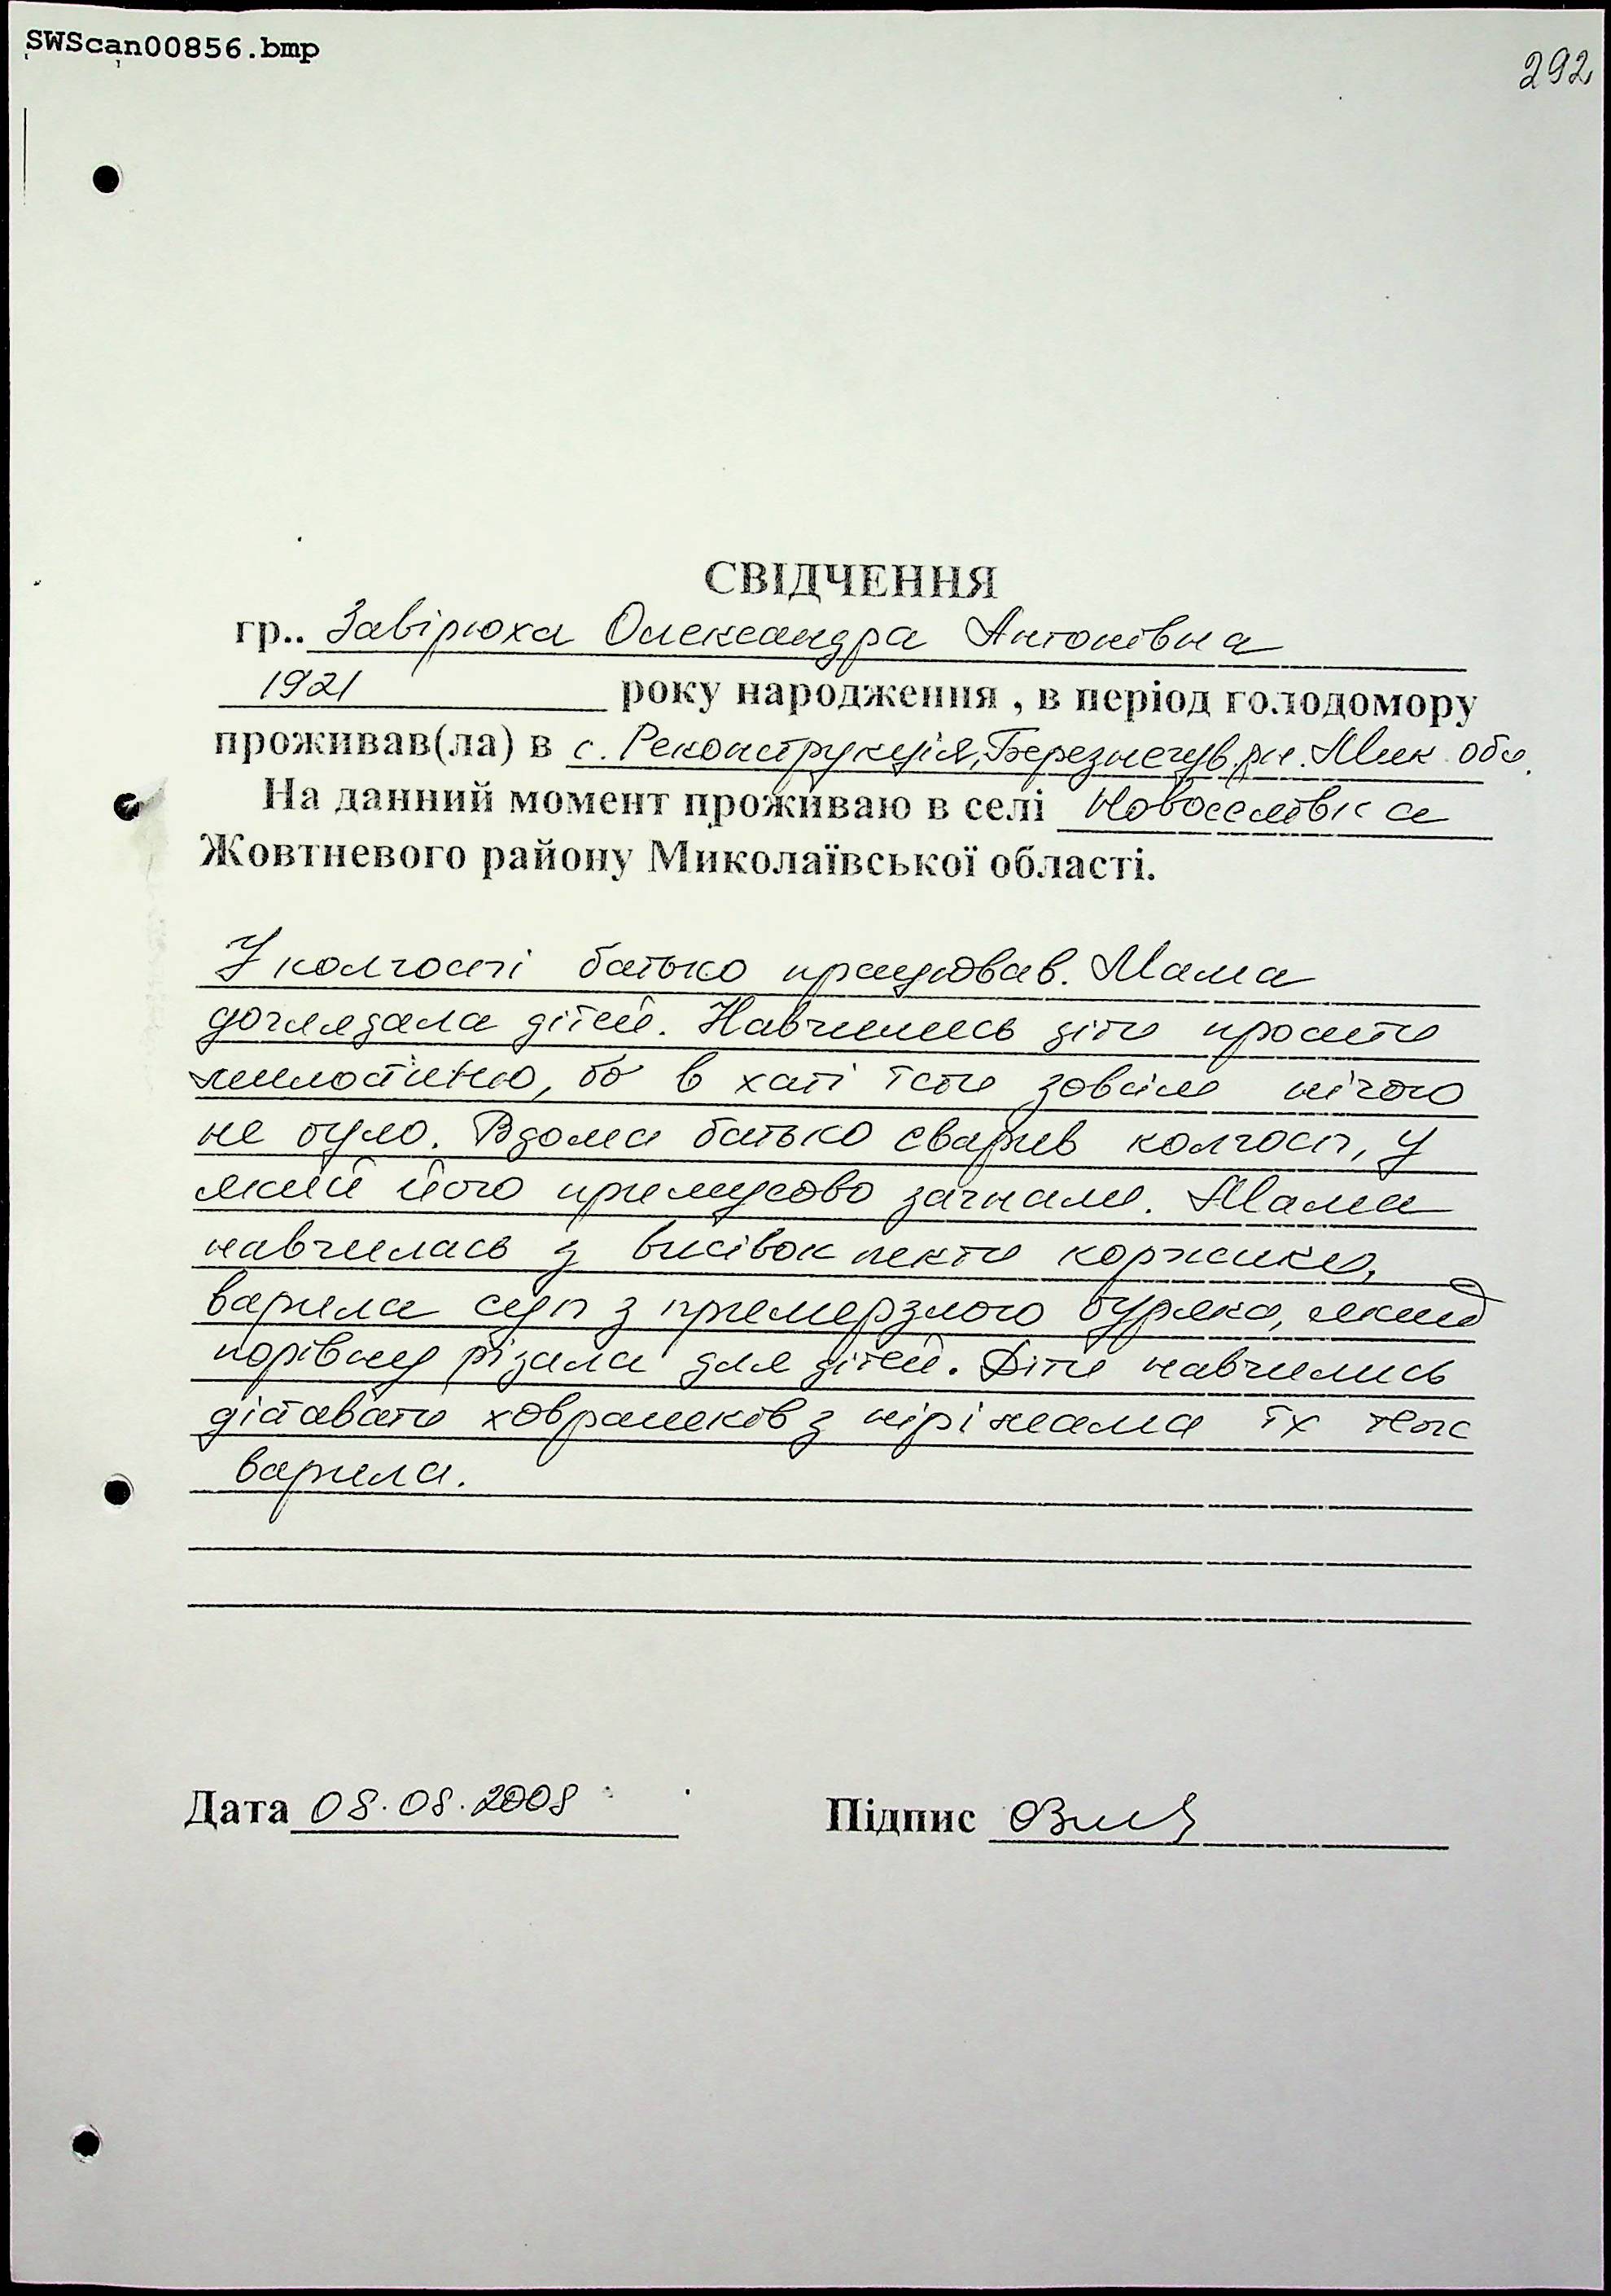 SWScan00856.bmp
292
СВІДЧЕННЯ
гр.. Завірюха Олександра Антонівна
1921 року народження , в період голодомору
проживав(ла) в с. Реконструкція, Березнегув. рн. Мик. обл.
На данний момент проживаю в селі Новоселівка
Жовтневого району Миколаївської області.
У колгоспі батько працював. Мама
доглядала дітей. Навчились діти просити
милостиню, бо в хаті їсти зовсім нічого
не було. Вдома батько сварив колгосп, у
який його примусово загнали. Мама
навчилась з висівок пекти коржики,
варила суп з примерзлого буряка, який
порівну різала для дітей. Діти навчились
діставати ховрашків з нірі мама їх теж
варила.
Дата 08.08.2008
Підпис